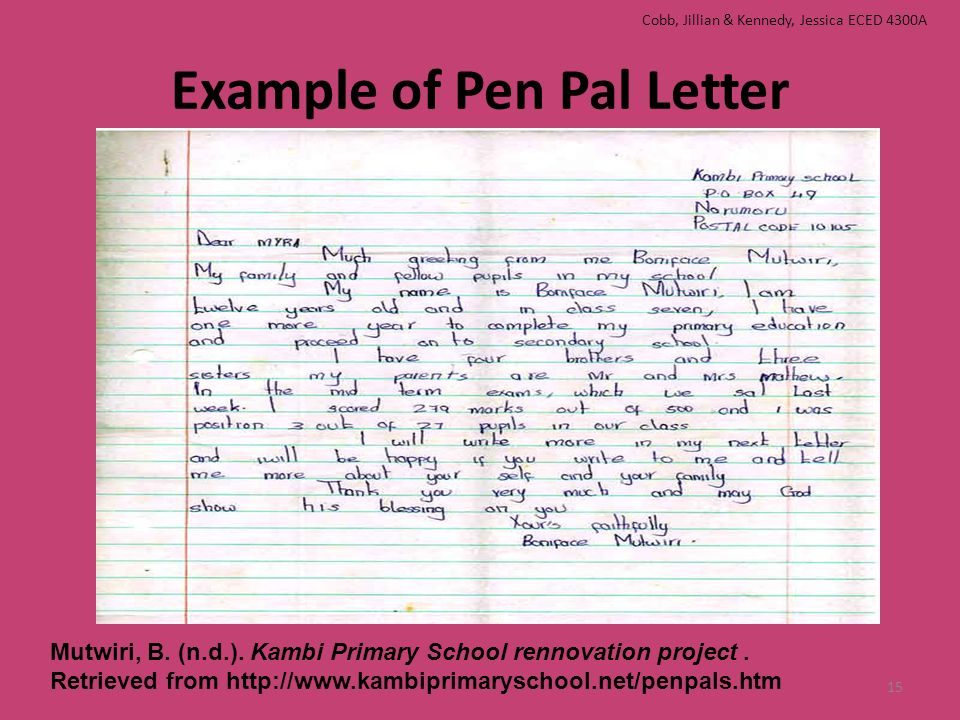 Cobb, Jillian & Kennedy, Jessica ECED 4300A
Example of Pen Pal Letter
Kambi Primary school
P.O BOX 49
Narumoru
POSTAL CODE 10105
Dear MYRA
Much greeting from me Boniface Mutwiri,
My family and fellow pupils in my school
My name is Boniface Mutwiri, I am
twelve years old and in class seven, I have
one more year to complete my primary education
and proceed on to secondary school.
I have four brothers and three
sisters my parents are Mr and Mrs Mathew.
In the mid term exams, which we sat last
week. I scored 279 marks out of 500 and i was
position 3 out of 27 pupils in our class
I will write more in my next letter
and iwill be happy if you write to me and tell
me more about your self and your family
Thank you very much and may God
show his blessing on you
Your's faithfully
Boniface Mutwiri.
Mutwiri, B. (n.d.). Kambi Primary School rennovation project .
Retrieved from http://www.kambiprimaryschool.net/penpals.htm
15